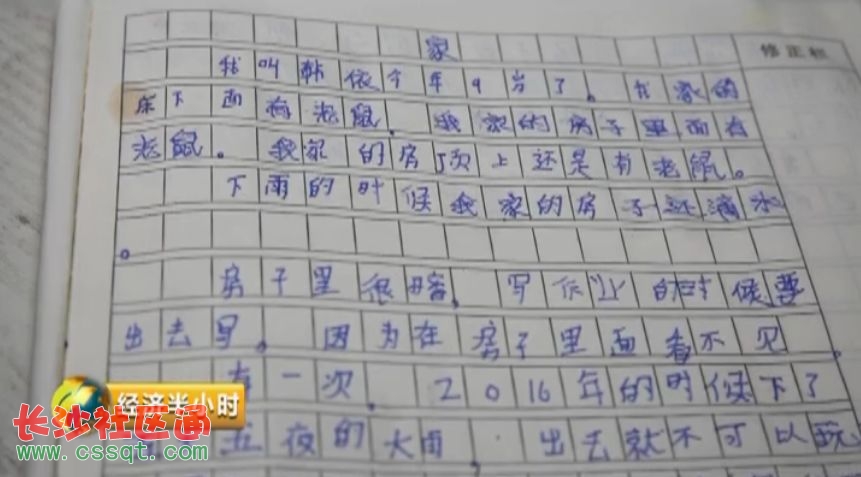 家
修正栏
我叫韩依今年9岁了。我家的
床下面有老鼠。我家的房子里面有
老鼠。我家的房顶上还是有老鼠。
下雨的时候我家的房子还滴水
。
房子里很暗。写作业的时候要
出去写。因为在房子里面看不见。
有一次。2016年的时候下了
五夜的大雨,出去就不可以玩
经济半小时
长沙社区通
www.cssqt.com